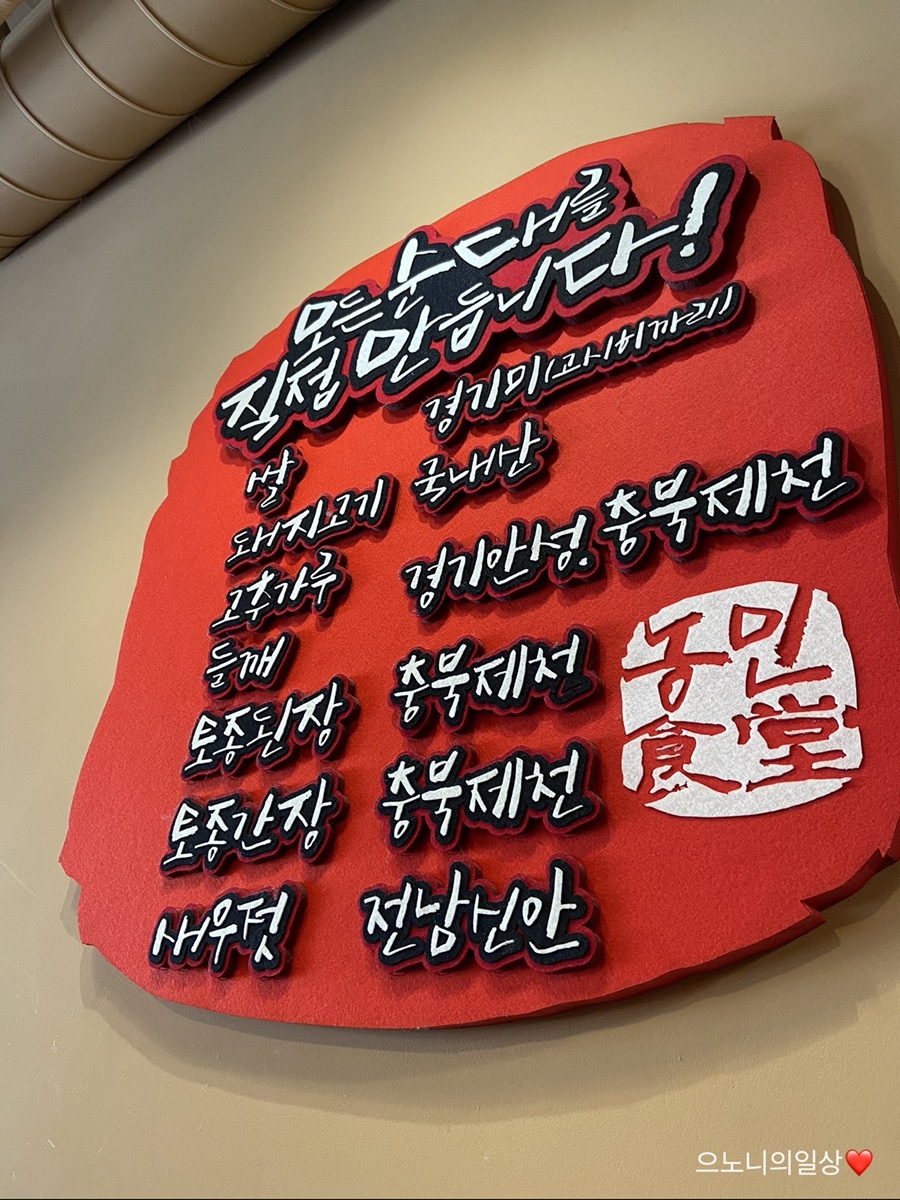 모든순대를
직접 만듭니다!
쌀 경기미(고시히까리)
돼지고기 국내산
고추가루 경기안성.충북제천
들깨 충북제천
토종된장 충북제천
토종간장
새우젓 전남신안
농민
食堂
으노니의일상❤️